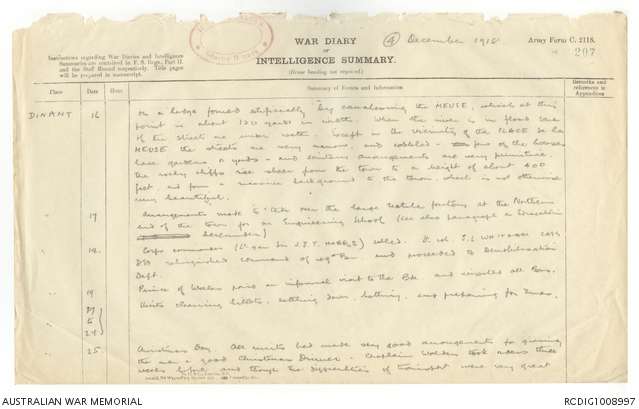 WAR DIARY
OF
INTELLIGENCE SUMMARY.
(Erase heading not required.)
④ December 1918
Army Form C. 2118.
207
Instructions regarding War Diaries and Intelligence
Summaries are contained in F. S. Regs., Part II.
and the Staff Manual respectively. Title pages
will be prepared in manuscript.
Place
Date
Hour
Summary of Events and Information
Remarks and
references to
Appendices
DINANT 16 on a ledge formed artificially by canalising the MEUSE, which at this
point is about 120 yards in width. When the river is in flood some
of the streets are under water. Except in the vicinity of the PLACE de la
MEUSE the streets are very narrow, and cobbled - few of the houses
have gardens or yards - and sanitary arrangements are very primitive.
The rocky cliffs rise sheer from the town to a height of about 400
feet, and form a background to the town, which is not otherwise
very beautiful.
17 Arrangements made to take over the large textile factory at the Northern
end of the town for an Engineering School (see also paragraph
December)
18 Corps Commander (Lt Gen Sir J.J.T. HOBBS) called. Lt Col. S.L.
DSO relinquished command of Bn and proceeded to Demobilisation
Dept.
19 Prince of Wales paid an informal visit to the Bde and all Bns.
Units cleaning billets, settling down, bathing, and preparing for Xmas.
to
24
25 Christmas Day. All units had made very good arrangements for giving
the men a good Christmas Dinner. Chaplain took three
weeks before and though the difficulties of transport were very great
AUSTRALIAN WAR MEMORIAL
RCDIG1008997